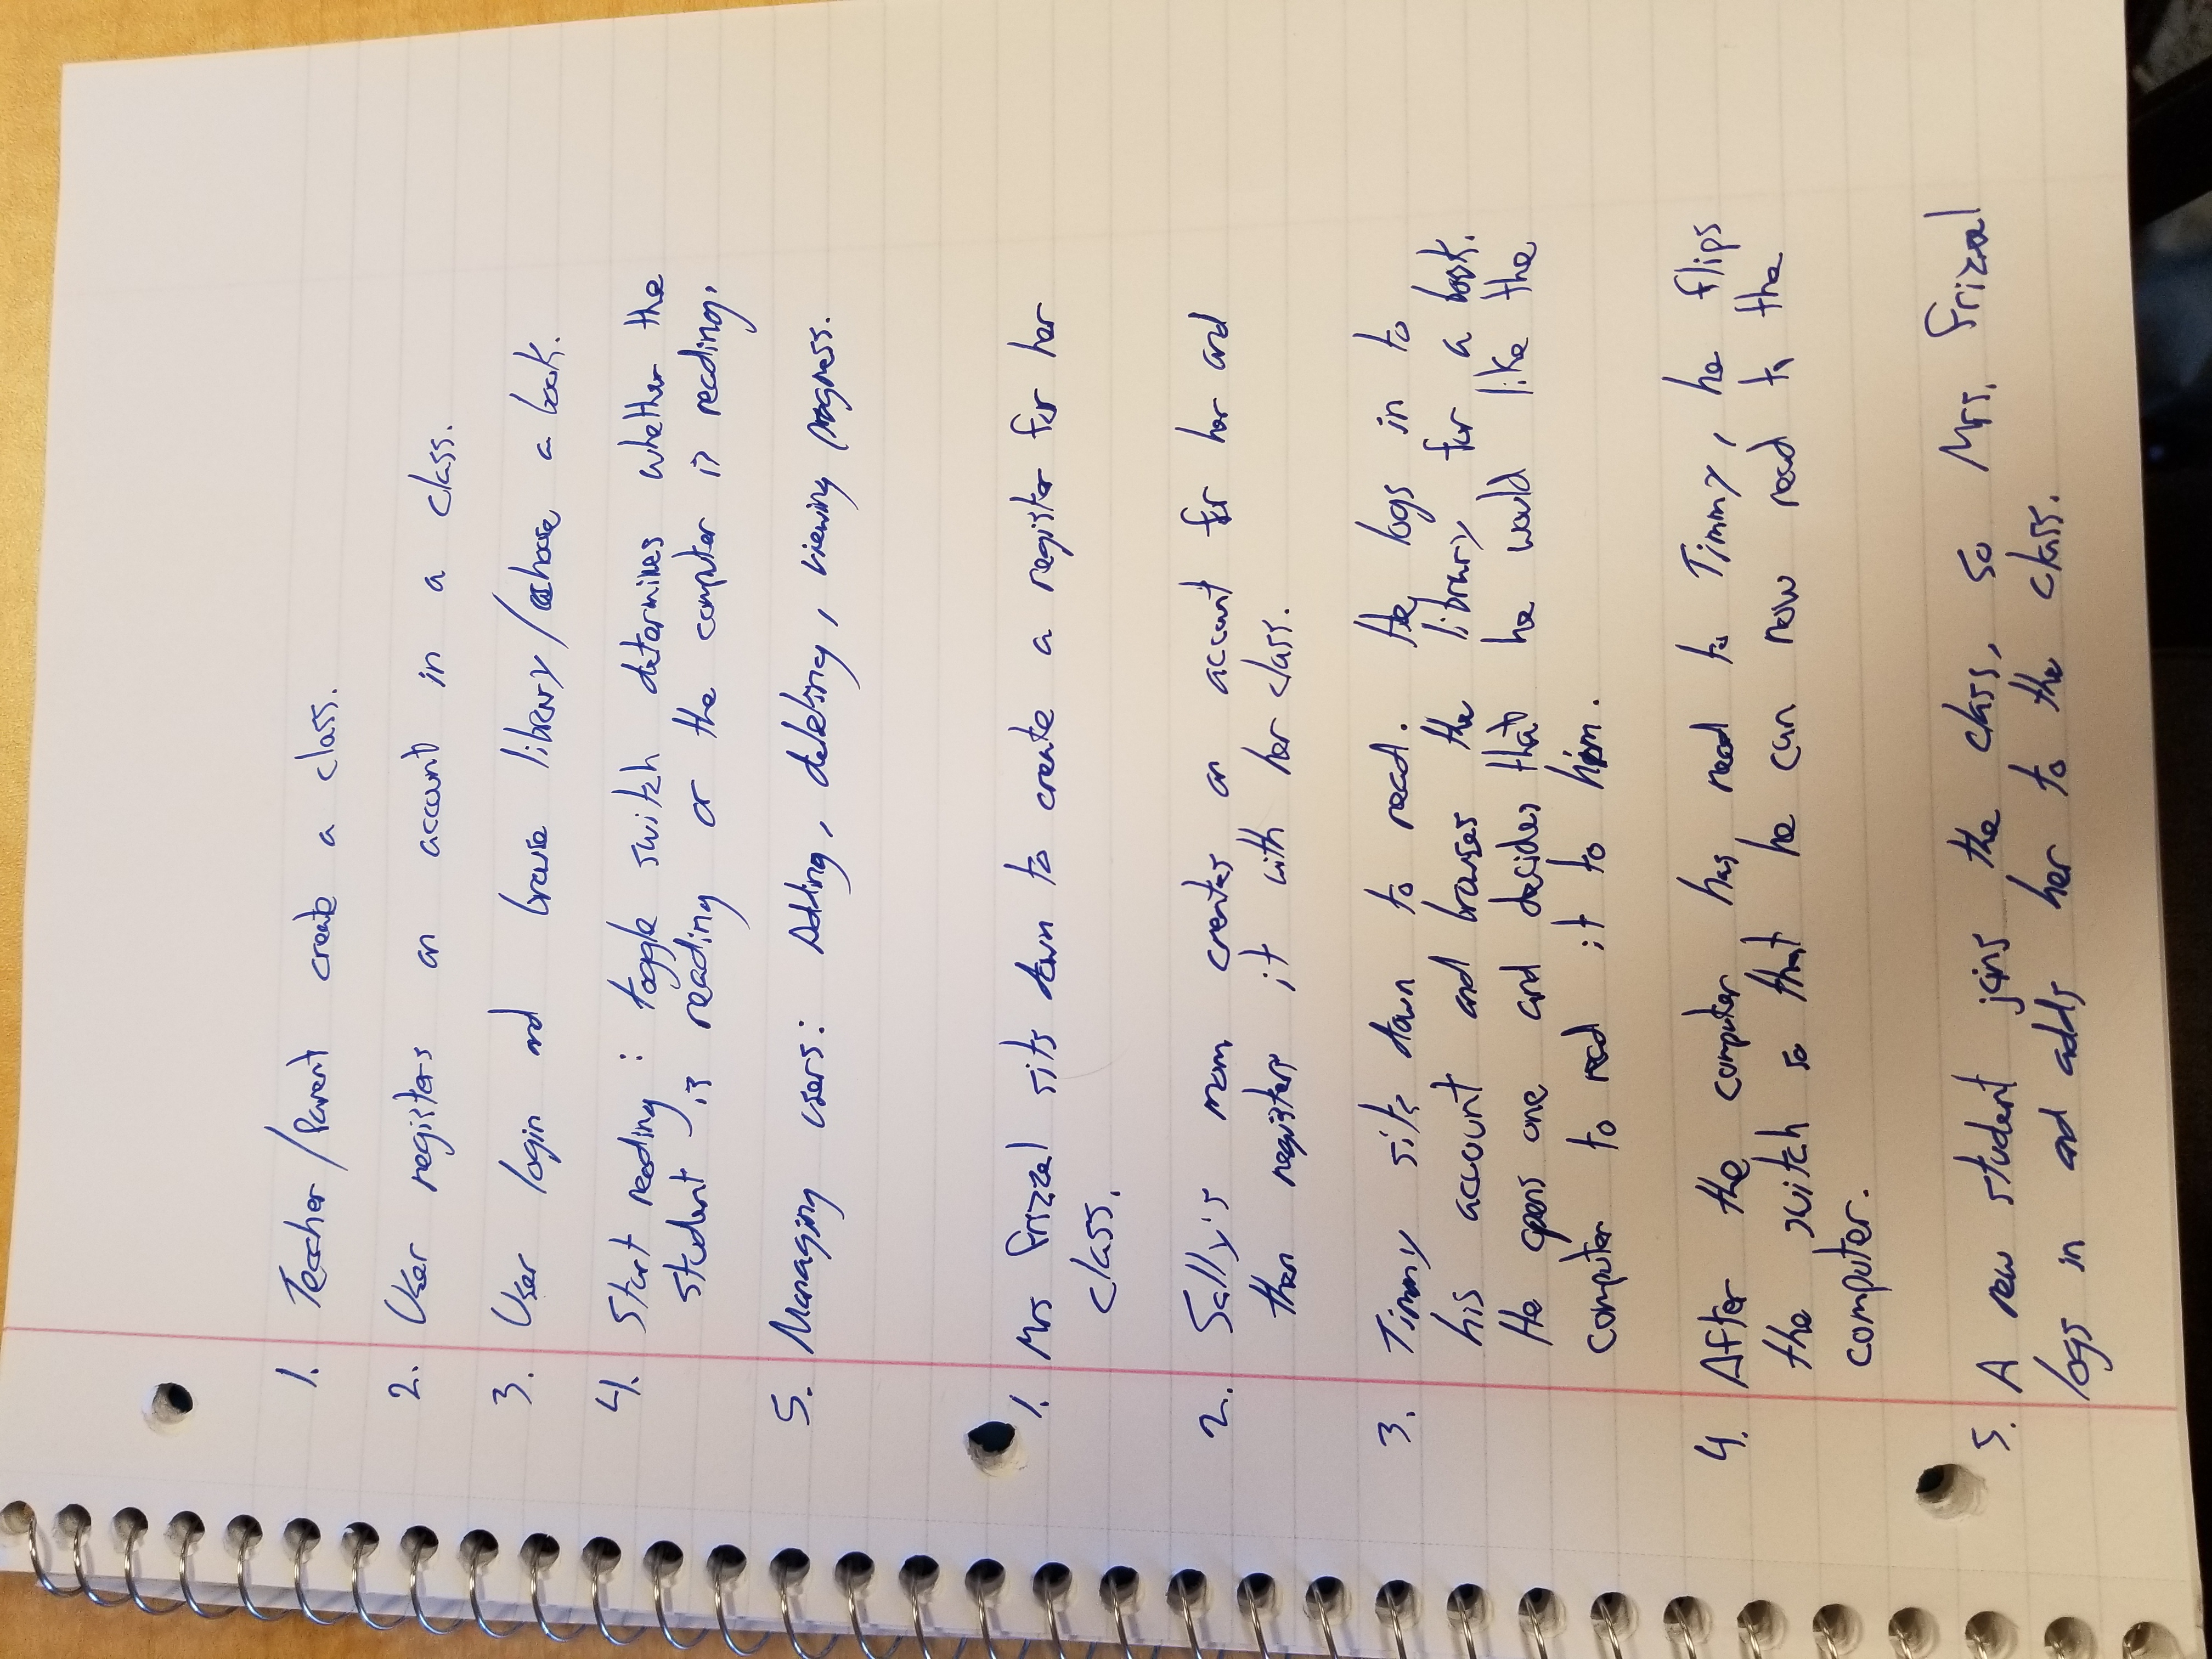 1. Teacher/Parent create a class.
2. User registers an account in a class.
3. User login and browse library/choose a book.
4. Start reading: toggle switch determines whether the
student is reading or the computer is reading.
5. Managing users: Adding, deleting, viewing progress.
1. Mrs Frizzel sits down to create a register for her
class.
2. Sally's mom creates an account for her and
then registers it with her class.
3. Timmy sits down to read. He logs in to
his account and browses the library for a book.
He opens one and decides that he would like the
computer to read it to him.
4. After the computer has read to Timmy, he flips
the switch so that he can now read to the
computer.
5. A new student joins the class, so Mrs. Frizzel
logs in and adds her to the class.